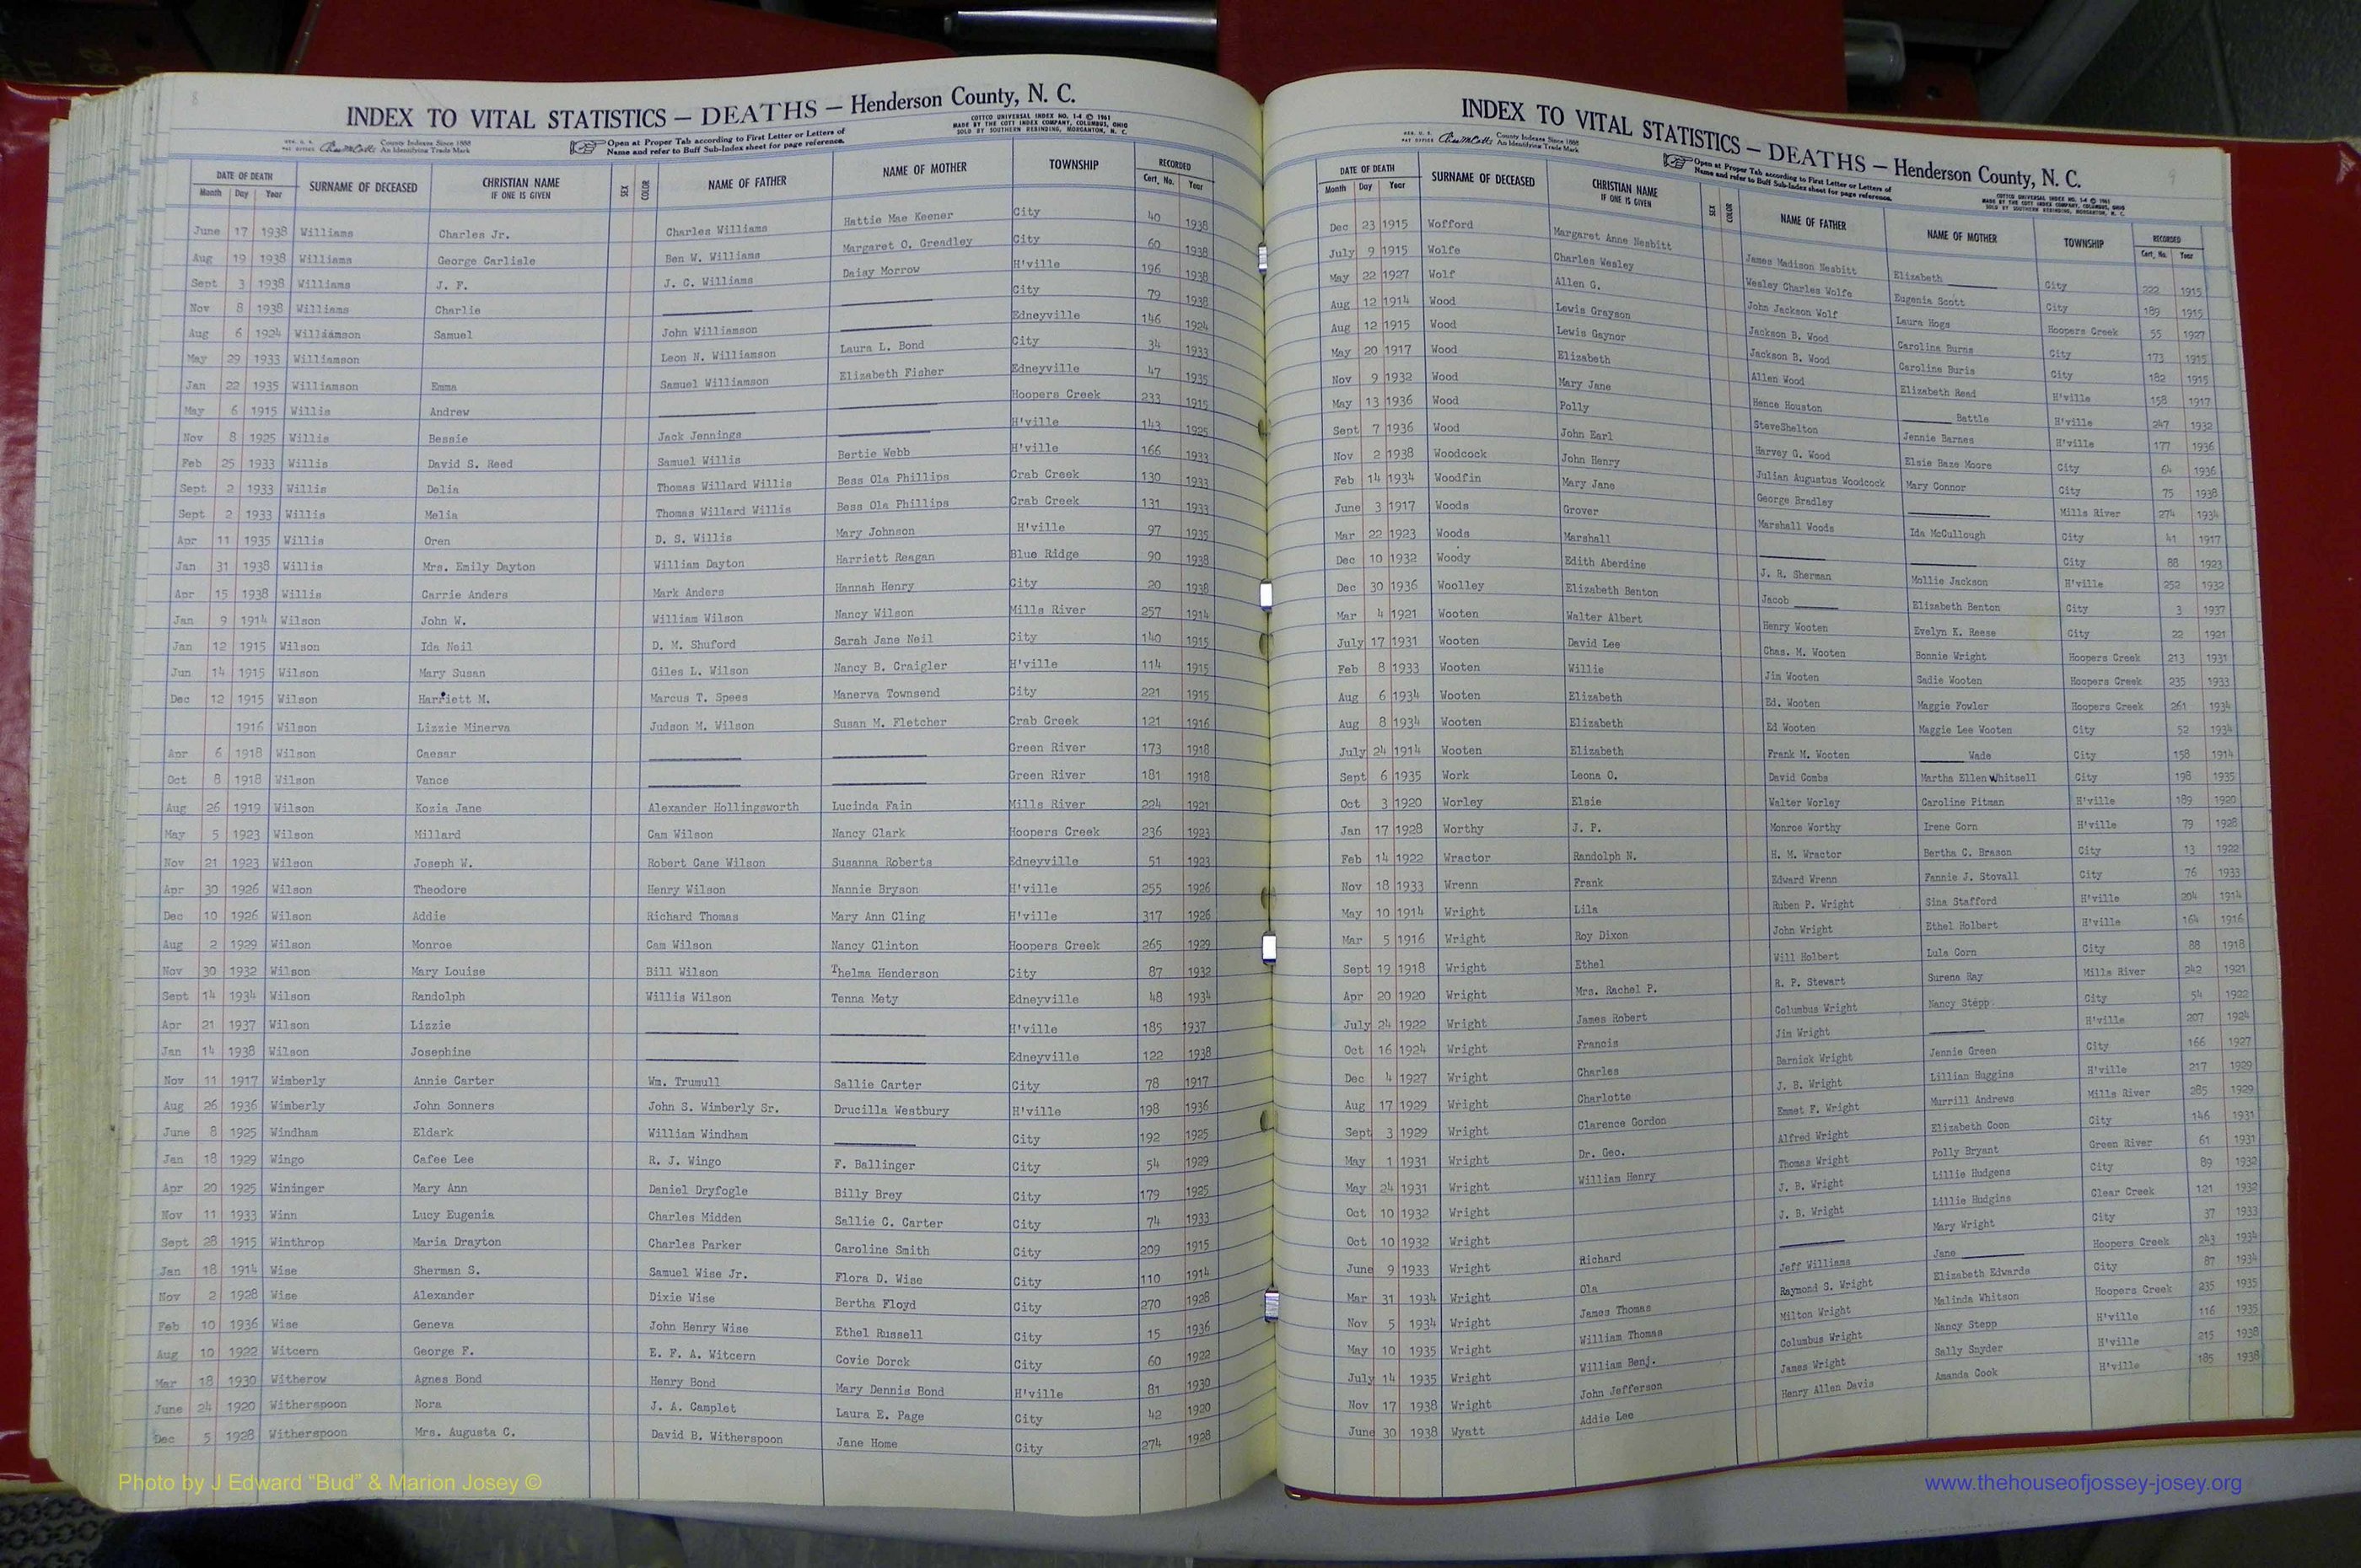 INDEX TO VITAL STATISTICS — DEATHS — Henderson County, N. C.
COTTCO UNIVERSAL INDEX NO. 1-4 © 1961
MADE BY THE COTT INDEX COMPANY, COLUMBUS, OHIO
SOLD BY SOUTHERN REBINDING, MORGANTON, N. C.
County Indexes Since 1888
An Identifying Trade Mark
Open at Proper Tab according to First Letter or Letters of
Name and refer to Buff Sub-Index sheet for page reference.
DATE OF DEATH Month Day Year SURNAME OF DECEASED CHRISTIAN NAME IF ONE IS GIVEN SEX COLOR NAME OF FATHER NAME OF MOTHER TOWNSHIP RECORDED Cert. No. Year
June 17 1938 Williams Charles Jr. Charles Williams Hattie Mae Keener City 40 1938
Aug 19 1938 Williams George Carlisle Ben W. Williams Margaret O. Greadley City 60 1938
Sept 3 1938 Williams J. F. J. C. Williams Daisy Morrow H'ville 196 1938
Nov 8 1938 Williams Charlie City 79 1938
Aug 6 1924 Williamson Samuel John Williamson Edneyville 146 1924
May 29 1933 Williamson Leon N. Williamson Laura L. Bond City 34 1933
Jan 22 1935 Williamson Emma Samuel Williamson Elizabeth Fisher Edneyville 47 1935
May 6 1915 Willis Andrew Hoopers Creek 233 1915
Nov 8 1925 Willis Bessie Jack Jennings H'ville 143 1925
Feb 25 1933 Willis David S. Reed Samuel Willis Bertie Webb H'ville 166 1933
Sept 2 1933 Willis Delia Thomas Willard Willis Bess Ola Phillips Crab Creek 130 1933
Sept 2 1933 Willis Melia Thomas Willard Willis Bess Ola Phillips Crab Creek 131 1933
Apr 11 1935 Willis Oren D. S. Willis Mary Johnson H'ville 97 1935
Jan 31 1938 Willis Mrs. Emily Dayton William Dayton Harriett Reagan Blue Ridge 90 1938
Apr 15 1938 Willis Carrie Anders Mark Anders Hannah Henry City 20 1938
Jan 9 1914 Wilson John W. William Wilson Nancy Wilson Mills River 257 1914
Jan 12 1915 Wilson Ida Neil D. M. Shuford Sarah Jane Neil City 140 1915
Jun 14 1915 Wilson Mary Susan Giles L. Wilson Nancy B. Craigler H'ville 114 1915
Dec 12 1915 Wilson Harriett M. Marcus T. Spees Manerva Townsend City 221 1915
1916 Wilson Lizzie Minerva Judson M. Wilson Susan M. Fletcher Crab Creek 121 1916
Apr 6 1918 Wilson Caesar Green River 173 1918
Oct 8 1918 Wilson Vance Green River 181 1918
Aug 26 1919 Wilson Kozia Jane Alexander Hollingsworth Lucinda Fain Mills River 224 1921
May 5 1923 Wilson Millard Cam Wilson Nancy Clark Hoopers Creek 236 1923
Nov 21 1923 Wilson Joseph W. Robert Cane Wilson Susanna Roberts Edneyville 51 1923
Apr 30 1926 Wilson Theodore Henry Wilson Nannie Bryson H'ville 255 1926
Dec 10 1926 Wilson Addie Richard Thomas Mary Ann Cling H'ville 317 1926
Aug 2 1929 Wilson Monroe Cam Wilson Nancy Clinton Hoopers Creek 265 1929
Nov 30 1932 Wilson Mary Louise Bill Wilson Thelma Henderson City 87 1932
Sept 14 1934 Wilson Randolph Willis Wilson Tenna Mety Edneyville 48 1934
Apr 21 1937 Wilson Lizzie H'ville 185 1937
Jan 14 1938 Wilson Josephine Edneyville 122 1938
Nov 11 1917 Wimberly Annie Carter Wm. Trumull Sallie Carter City 78 1917
Aug 26 1936 Wimberly John Sonners John S. Wimberly Sr. Drucilla Westbury H'ville 198 1936
June 8 1925 Windham Eldark William Windham City 192 1925
Jan 18 1929 Wingo Cafee Lee R. J. Wingo F. Ballinger City 54 1929
Apr 20 1925 Wininger Mary Ann Daniel Dryfogle Billy Brey City 179 1925
Nov 11 1933 Winn Lucy Eugenia Charles Midden Sallie C. Carter City 74 1933
Sept 28 1915 Winthrop Maria Drayton Charles Parker Caroline Smith City 209 1915
Jan 18 1914 Wise Sherman S. Samuel Wise Jr. Flora D. Wise City 110 1914
Nov 2 1928 Wise Alexander Dixie Wise Bertha Floyd City 270 1928
Feb 10 1936 Wise Geneva John Henry Wise Ethel Russell City 15 1936
Aug 10 1922 Witcern George F. E. F. A. Witcern Covie Dorck City 60 1922
Mar 18 1930 Witherow Agnes Bond Henry Bond Mary Dennis Bond H'ville 81 1930
June 24 1920 Witherspoon Nora J. A. Camplet Laura E. Page City 42 1920
Dec 5 1928 Witherspoon Mrs. Augusta C. David B. Witherspoon Jane Home City 274 1928
INDEX TO VITAL STATISTICS — DEATHS — Henderson County, N. C.
County Indexes Since 1888
An Identifying Trade Mark
Open at Proper Tab according to First Letter or Letters of
Name and refer to Buff Sub-Index sheet for page reference.
COTTCO UNIVERSAL INDEX NO. 1-4 © 1961
MADE BY THE COTT INDEX COMPANY, COLUMBUS, OHIO
SOLD BY SOUTHERN REBINDING, MORGANTON, N. C.
9
DATE OF DEATH Month Day Year SURNAME OF DECEASED CHRISTIAN NAME IF ONE IS GIVEN SEX COLOR NAME OF FATHER NAME OF MOTHER TOWNSHIP RECORDED Cert. No. Year
Dec 23 1915 Wofford Margaret Anne Nesbitt James Madison Nesbitt Elizabeth City 222 1915
July 9 1915 Wolfe Charles Wesley Wesley Charles Wolfe Eugenia Scott City 189 1915
May 22 1927 Wolf Allen G. John Jackson Wolf Laura Hogs Hoopers Creek 55 1927
Aug 12 1914 Wood Lewis Grayson Jackson B. Wood Carolina Burns City 173 1915
Aug 12 1915 Wood Lewis Gaynor Jackson B. Wood Caroline Buris City 182 1915
May 20 1917 Wood Elizabeth Allen Wood Elizabeth Read H'ville 158 1917
Nov 9 1932 Wood Mary Jane Hence Houston Battle H'ville 247 1932
May 13 1936 Wood Polly SteveShelton Jennie Barnes H'ville 177 1936
Sept 7 1936 Wood John Earl Harvey G. Wood Elsie Baze Moore City 64 1936
Nov 2 1938 Woodcock John Henry Julian Augustus Woodcock Mary Connor City 75 1938
Feb 14 1934 Woodfin Mary Jane George Bradley Mills River 274 1934
June 3 1917 Woods Grover Marshall Woods Ida McCullough City 41 1917
Mar 22 1923 Woods Marshall City 88 1923
Dec 10 1932 Woody Edith Aberdine J. R. Sherman Mollie Jackson H'ville 252 1932
Dec 30 1936 Woolley Elizabeth Benton Jacob Elizabeth Benton City 3 1937
Mar 4 1921 Wooten Walter Albert Henry Wooten Evelyn K. Reese City 22 1921
July 17 1931 Wooten David Lee Chas. M. Wooten Bonnie Wright Hoopers Creek 213 1931
Feb 8 1933 Wooten Willie Jim Wooten Sadie Wooten Hoopers Creek 235 1933
Aug 6 1934 Wooten Elizabeth Ed. Wooten Maggie Fowler Hoopers Creek 261 1934
Aug 8 1934 Wooten Elizabeth Ed Wooten Maggie Lee Wooten City 52 1934
July 24 1914 Wooten Elizabeth Frank M. Wooten Wade City 158 1914
Sept 6 1935 Work Leona O. David Combs Martha Ellen Whitsell City 198 1935
Oct 3 1920 Worley Elsie Walter Worley Caroline Pitman H'ville 189 1920
Jan 17 1928 Worthy J. P. Monroe Worthy Irene Corn H'ville 79 1928
Feb 14 1922 Wractor Randolph N. H. M. Wractor Bertha C. Brason City 13 1922
Nov 18 1933 Wrenn Frank Edward Wrenn Fannie J. Stovall City 76 1933
May 10 1914 Wright Lila Ruben P. Wright Sina Stafford H'ville 204 1914
Mar 5 1916 Wright Roy Dixon John Wright Ethel Holbert H'ville 164 1916
Sept 19 1918 Wright Ethel Will Holbert Lula Corn City 88 1918
Apr 20 1920 Wright Mrs. Rachel P. R. P. Stewart Surena Ray Mills River 242 1921
July 24 1922 Wright James Robert Columbus Wright Nancy Stepp City 54 1922
Oct 16 1924 Wright Francis Jim Wright H'ville 207 1924
Dec 4 1927 Wright Charles Barnick Wright Jennie Green City 166 1927
Aug 17 1929 Wright Charlotte J. B. Wright Lillian Huggins H'ville 217 1929
Sept 3 1929 Wright Clarence Gordon Emmet F. Wright Murrill Andrews Mills River 285 1929
May 1 1931 Wright Dr. Geo. Alfred Wright Elizabeth Coon City 146 1931
May 24 1931 Wright William Henry Thomas Wright Polly Bryant Green River 61 1931
Oct 10 1932 Wright J. B. Wright Lillie Hudgens City 89 1932
Oct 10 1932 Wright J. B. Wright Lillie Hudgins Clear Creek 121 1932
June 9 1933 Wright Richard Mary Wright City 37 1933
Mar 31 1934 Wright Ola Jeff Williams Jane Hoopers Creek 243 1934
Nov 5 1934 Wright James Thomas Raymond S. Wright Elizabeth Edwards City 87 1934
May 10 1935 Wright William Thomas Milton Wright Malinda Whitson Hoopers Creek 235 1935
July 14 1935 Wright William Benj. Columbus Wright Nancy Stepp H'ville 116 1935
Nov 17 1938 Wright John Jefferson James Wright Sally Snyder H'ville 215 1938
June 30 1938 Wyatt Addie Lee Henry Allen Davis Amanda Cook H'ville 185 1938
Photo by J Edward “Bud” & Marion Josey ©
www.thehouseofjossey-josey.org